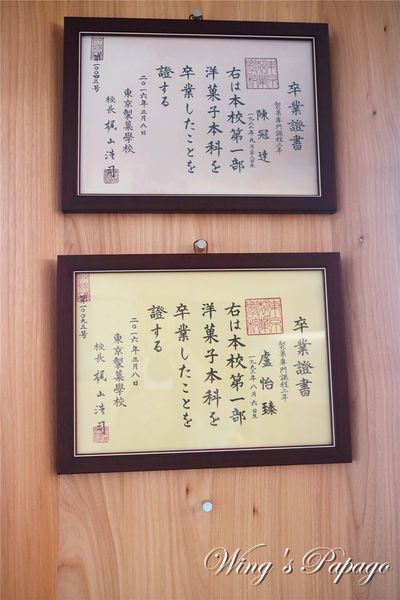 卒業證書
製菓専門課程二年
陳冠達
右は本校第一部
洋菓子本科を
卒業したことを
證する
二〇一六年三月八日
東京製菓學校
校長 梶山浩司
第一〇〇四三号
卒業證書
製菓専門課程二年
盧怡臻
一九九三年八月六日生
右は本校第一部
洋菓子本科を
卒業したことを
證する
二〇一六年三月八日
東京製菓學校
校長 梶山浩司
第一〇〇九三号
Wing's Papago